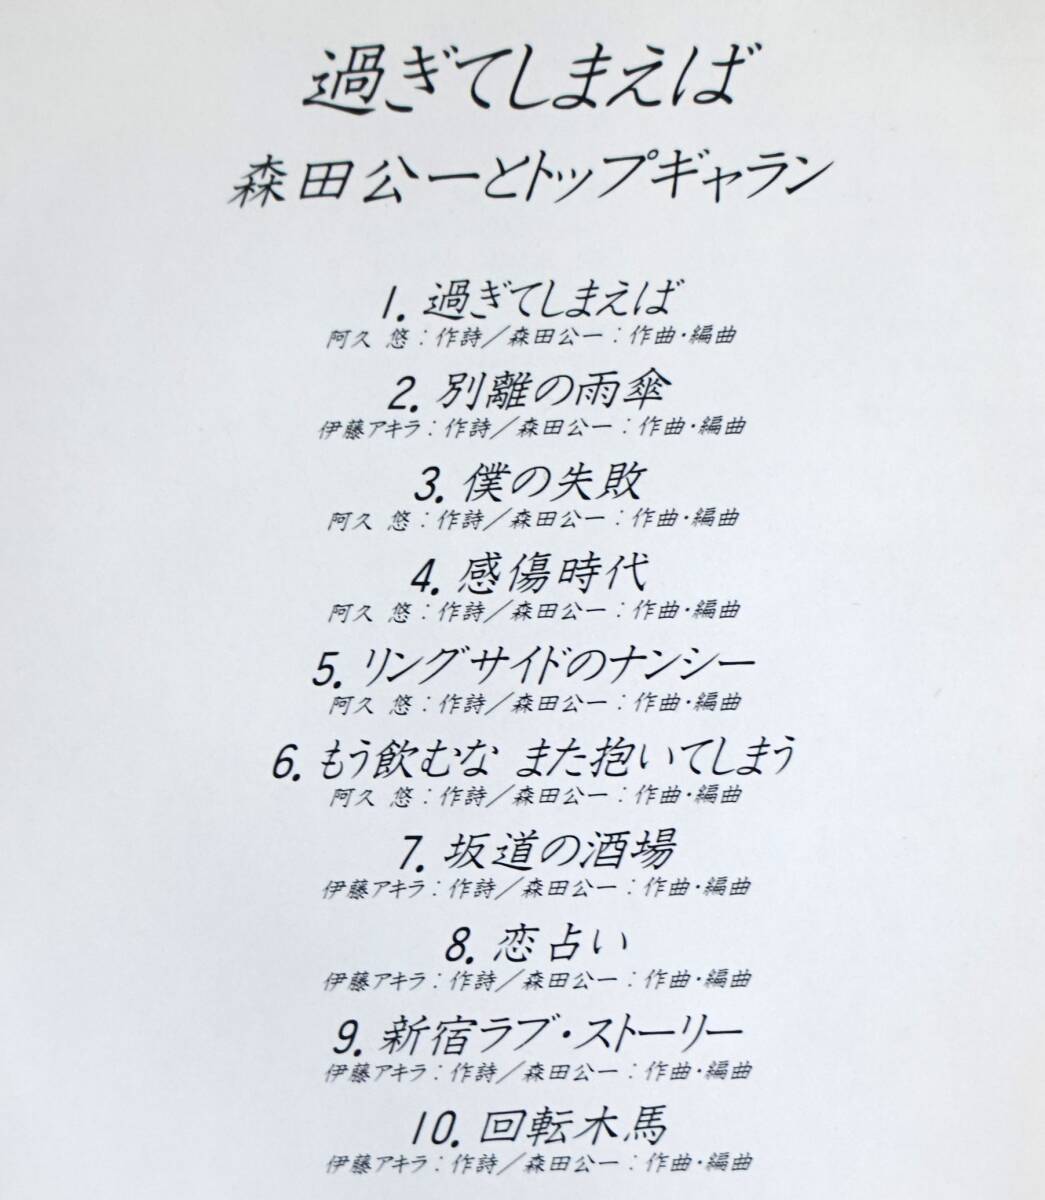 過ぎてしまえば
森田公一とトップギャラン
1. 過ぎてしまえば
阿久 悠：作詩／森田公一：作曲・編曲
2. 別離の雨傘
伊藤アキラ：作詩／森田公一：作曲・編曲
3. 僕の失敗
阿久 悠：作詩／森田公一：作曲・編曲
4. 感傷時代
阿久 悠：作詩／森田公一：作曲・編曲
5. リングサイドのナンシー
阿久 悠：作詩／森田公一：作曲・編曲
6. もう飲むな また抱いてしまう
阿久 悠：作詩／森田公一：作曲・編曲
7. 坂道の酒場
伊藤アキラ：作詩／森田公一：作曲・編曲
8. 恋占い
伊藤アキラ：作詩／森田公一：作曲・編曲
9. 新宿ラブ・ストーリー
伊藤アキラ：作詩／森田公一：作曲・編曲
10. 回転木馬
伊藤アキラ：作詩／森田公一：作曲・編曲